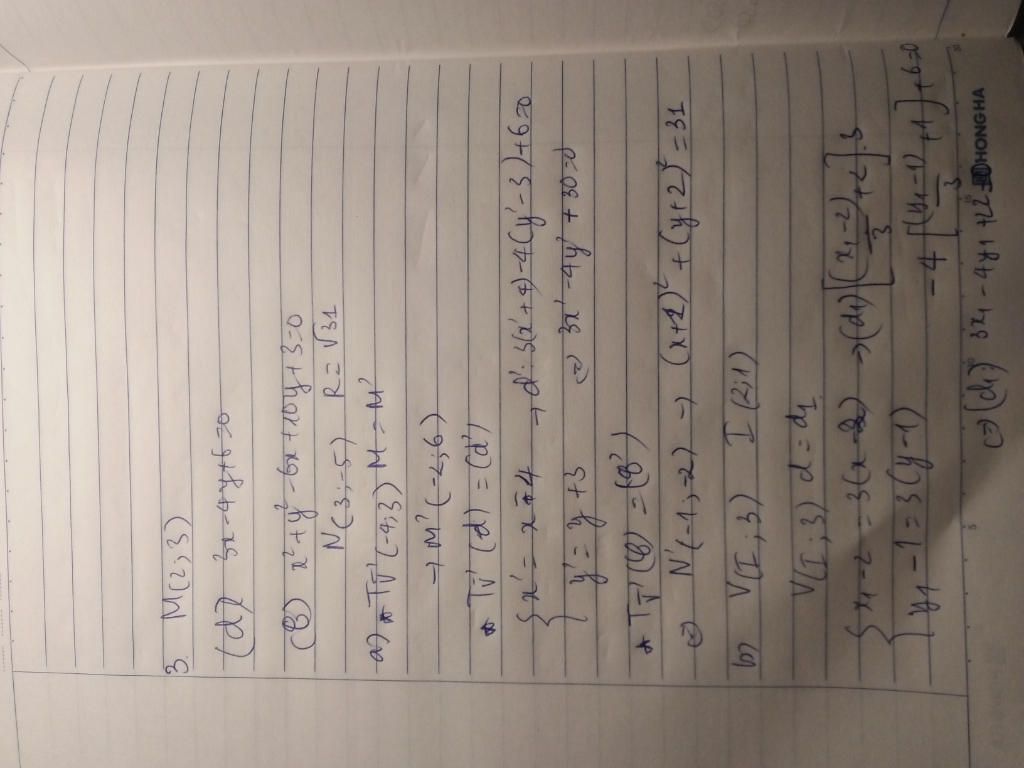 3. M(2;3)
(d) 3x-4y+6=0
(C) x²+y²-6x+10y+3=0
N(3;-5) R=√31
a) * Tv(-4;3) M = M'
→ M'(-2;6)
* Tv(d) = (d')
{ x' = x-4 → d': 3(x'+4)-4(y'-3)+6=0
{ y' = y+3 <=> 3x'-4y'+30=0
* Tv(C) = (C')
<=> N'(-1;-2) → (x+2)²+(y+2)²=31
b) V(I;3) I(2;1)
V(I;3) d = d₁
{ x₁-2 = 3(x-2) → (d₁) [(x₁-2)/3 +2].3
{ y₁-1 = 3(y-1) -4[(y₁-1)/3 +1]+6=0
<=> (d₁) 3x₁-4y₁+22=0
HONGHA